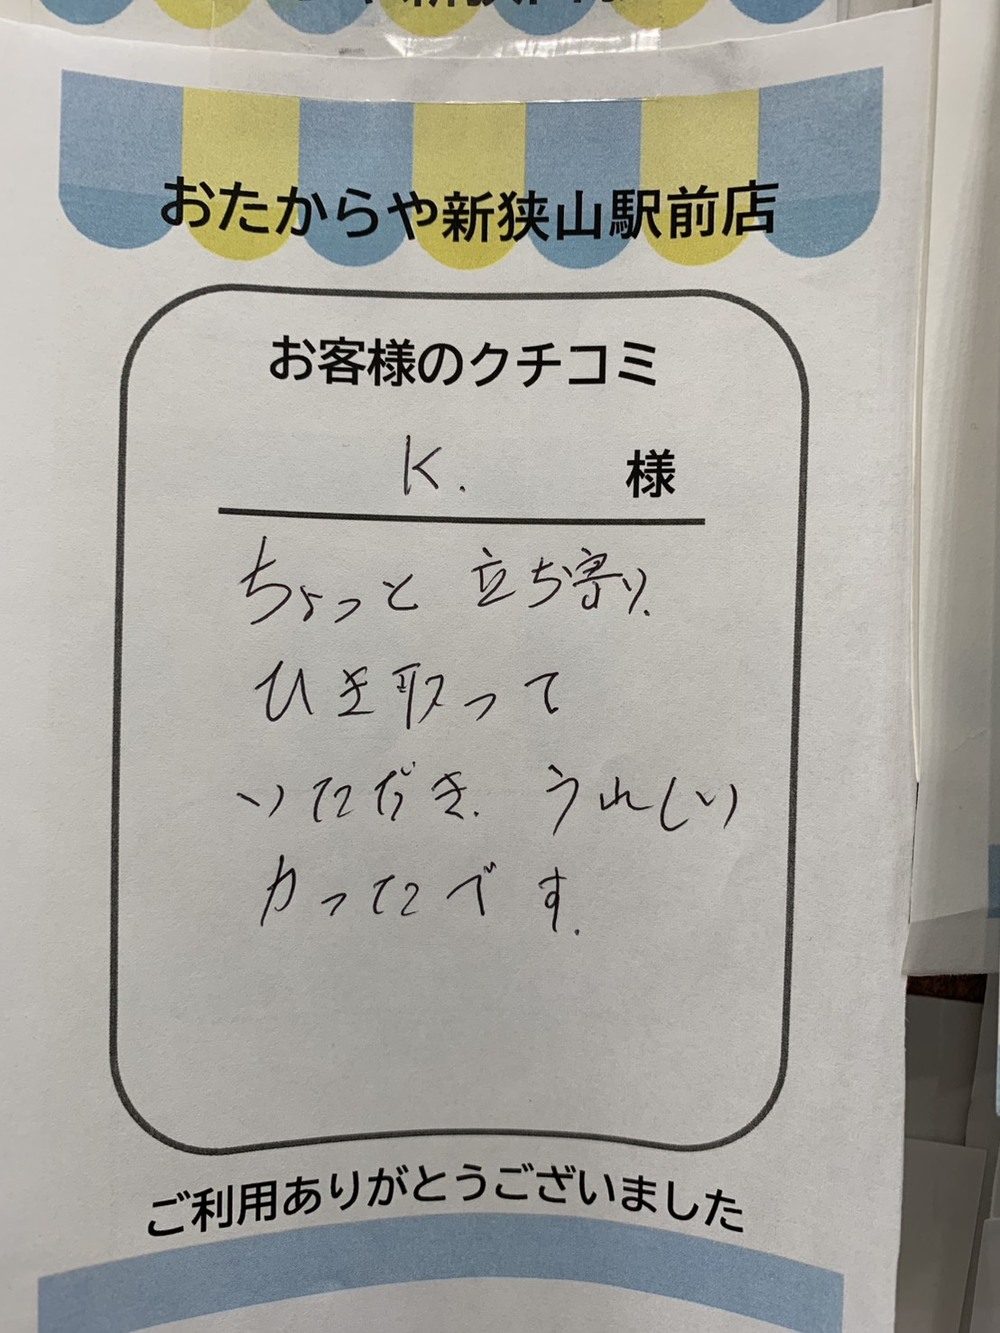 おたからや新狭山駅前店
お客様のクチコミ
K. 様
ちょっと立ち寄り.
ひき取って
いただき. うれしい
カったです.
ご利用ありがとうございました